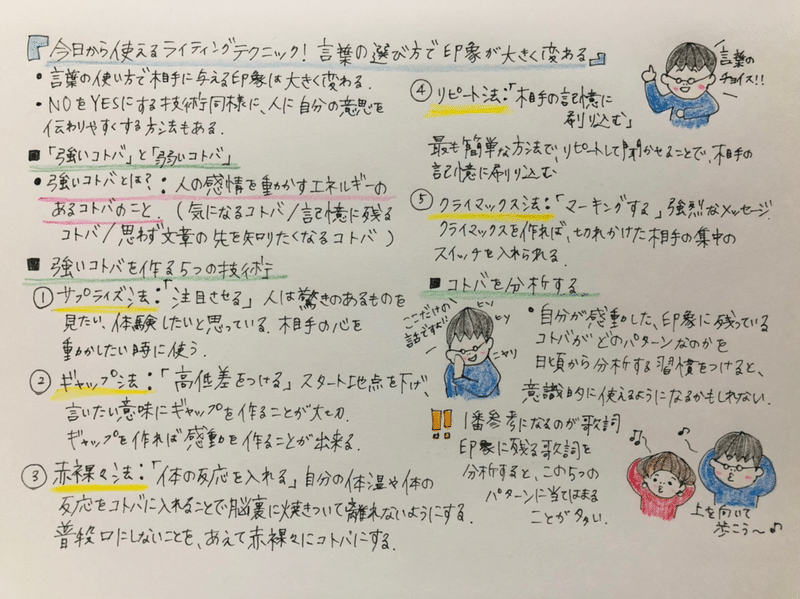 『今日から使えるライティングテクニック! 言葉の選び方で印象が大きく変わる』
・言葉の使い方で相手に与える印象は大きく変わる.
・NOをYESにする技術同様に、人に自分の意思を
伝わりやすくする方法もある.
■「強いコトバ」と「弱いコトバ」
・強いコトバとは?：人の感情を動かすエネルギーの
あるコトバのこと. (気になるコトバ/記憶に残る
コトバ/思わず文章の先を知りたくなるコトバ)
■ 強いコトバを作る5つの技術
① サプライズ法：「注目させる」人は驚きのあるものを
見たい、体験したいと思っている. 相手の心を
動かしたい時に使う.
② ギャップ法：「高低差をつける」スタート地点を下げ、
言いたい意味にギャップを作ることが大切.
ギャップを作れば感動を作ることが出来る.
③ 赤裸々法：「体の反応を入れる」自分の体温や体の
反応をコトバに入れることで脳裏に焼きついて離れないようにする.
普段口にしないことを、あえて赤裸々にコトバにする.
④ リピート法：「相手の記憶に
刷り込む」
最も簡単な方法で、リピートして聞かせることで、相手の
記憶に刷り込む
⑤ クライマックス法：「マーキングする」強烈なメッセージ.
クライマックスを作れば、切れかけた相手の集中の
スイッチを入れられる.
言葉の
チョイス!!
■ コトバを分析する.
・自分が感動した、印象に残っている
コトバがどのパターンなのかを
日頃から分析する習慣をつけると、
意識的に使えるようになるかもしれない.
ここだけの
話ですよ!!
ヒソ
ヒソ
ニヤリ
!! 1番参考になるのが歌詞
印象に残る歌詞を
分析すると、この5つの
パターンに当てはまる
ことが多い.
上を向いて
歩こう〜♪